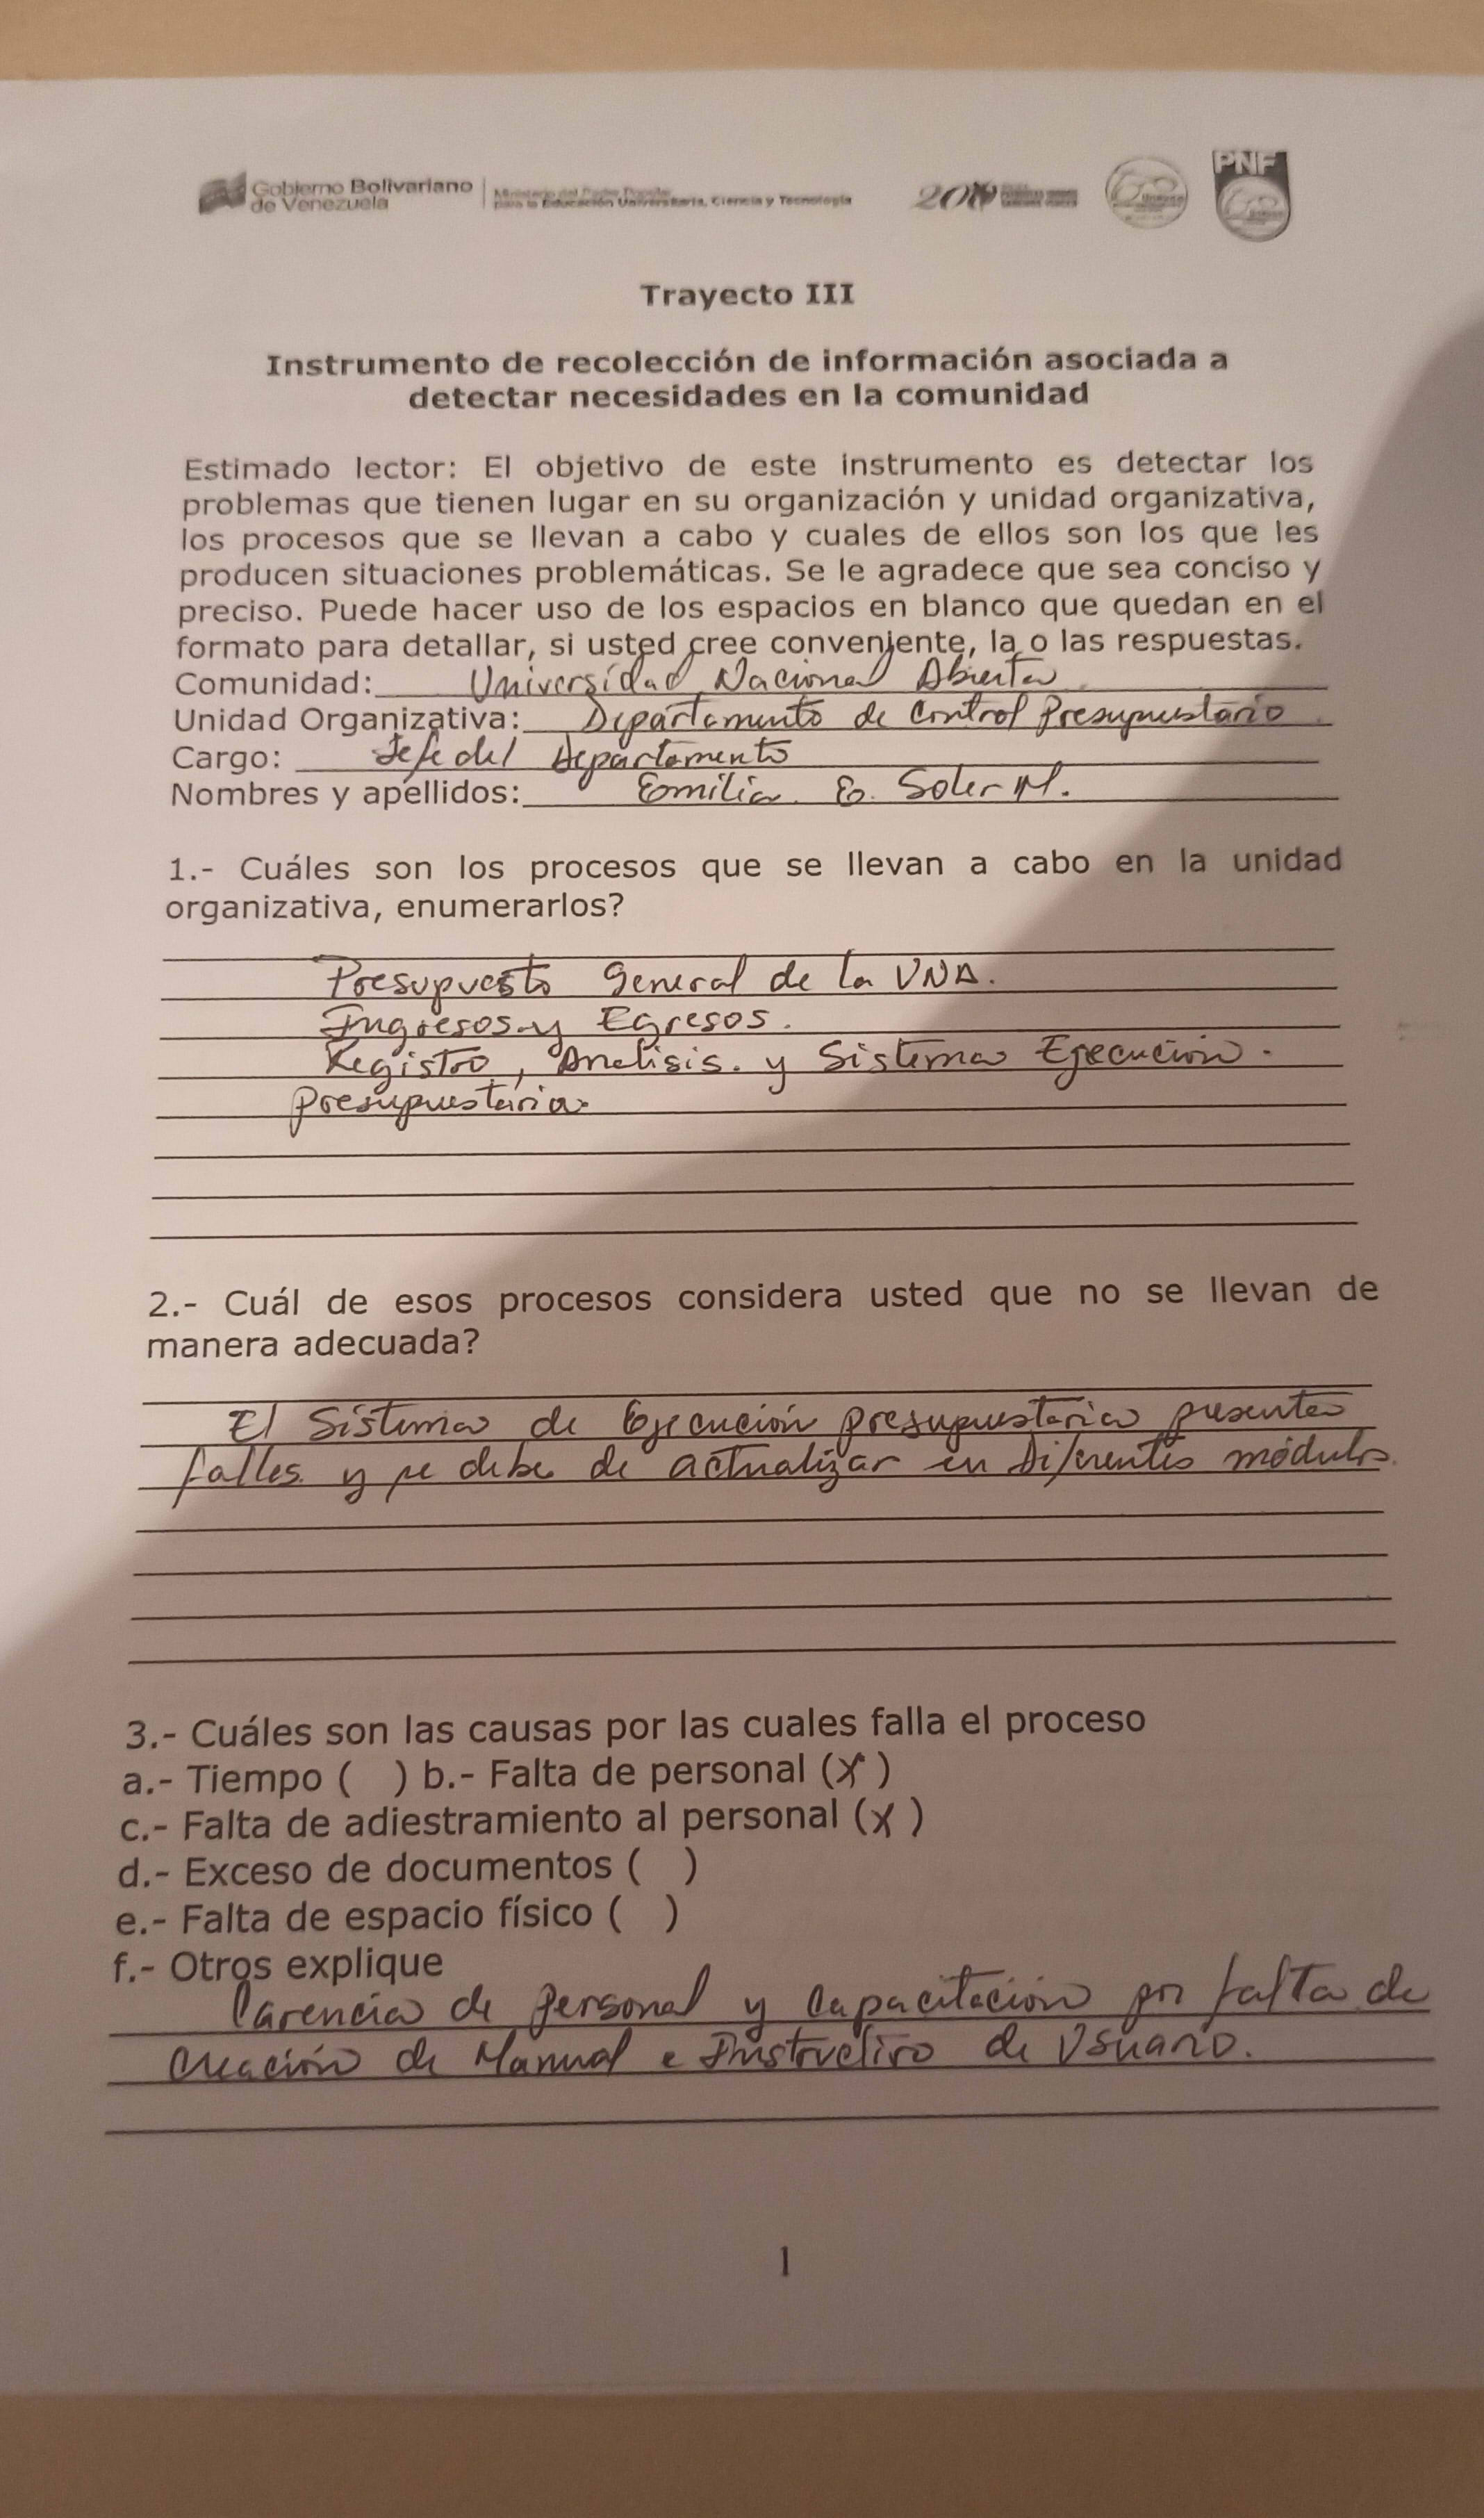 Gobierno Bolivariano
de Venezuela
Ministerio del Poder Popular
para la Educación Universitaria, Ciencia y Tecnología
200
PNF
Trayecto III
Instrumento de recolección de información asociada a
detectar necesidades en la comunidad
Estimado lector: El objetivo de este instrumento es detectar los
problemas que tienen lugar en su organización y unidad organizativa,
los procesos que se llevan a cabo y cuales de ellos son los que les
producen situaciones problemáticas. Se le agradece que sea conciso y
preciso. Puede hacer uso de los espacios en blanco que quedan en el
formato para detallar, si usted cree conveniente, la o las respuestas.
Comunidad: Universidad Nacional Abierta
Unidad Organizativa: Departamento de Control Presupuestario
Cargo: Jefe del Departamento
Nombres y apellidos: Emilia E. Soler M.
1.- Cuáles son los procesos que se llevan a cabo en la unidad
organizativa, enumerarlos?
Presupuesto General de la UNA.
Ingresos y Egresos.
Registro, Analisis. y Sistema Ejecución.
Presupuestaria.
2.- Cuál de esos procesos considera usted que no se llevan de
manera adecuada?
El Sistema de Ejecución presupuestaria presenta
falles. y se debe de actualizar en diferentes módulos.
3.- Cuáles son las causas por las cuales falla el proceso
a.- Tiempo ( ) b.- Falta de personal (X)
c.- Falta de adiestramiento al personal (X)
d.- Exceso de documentos ( )
e.- Falta de espacio físico ( )
f.- Otros explique
Carencia de personal y Capacitación por falta de
creación de Manual e Instructivo de Usuario.
1